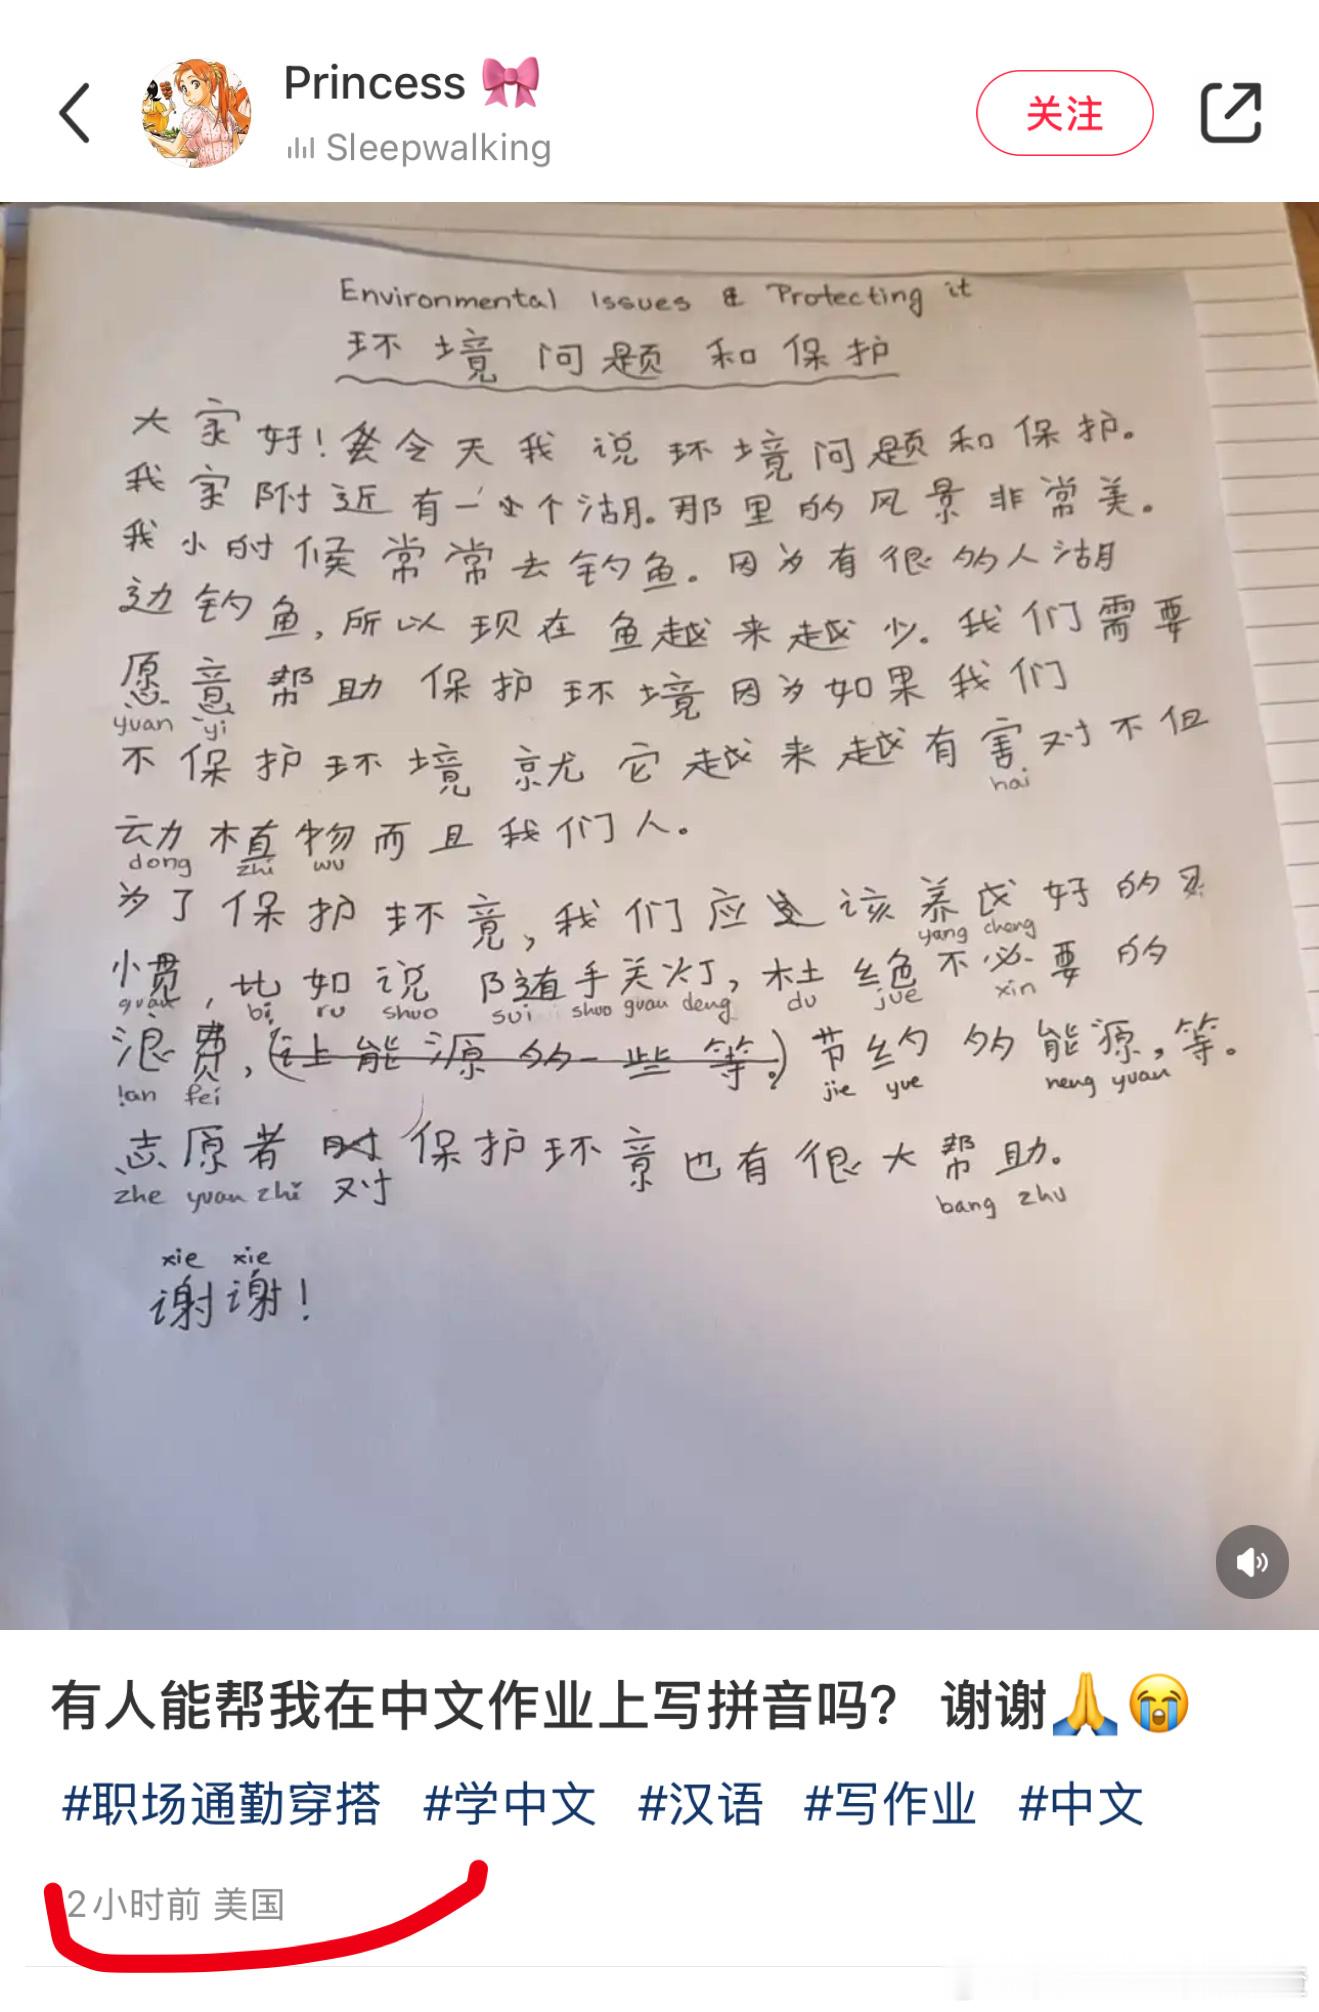 Princess
Sleepwalking
关注
Environmental Issues & Protecting it
环境问题和保护
大家好!今天我说环境问题和保护。
我家附近有一个湖。那里的风景非常美。
我小时候常常去钓鱼。因为有很多人湖
边钓鱼,所以现在鱼越来越少。我们需要
愿意帮助保护环境因为如果我们
yuan yi
不保护环境就它越来越有害对不但
hai
动植物而且我们人。
dong zhi wu
为了保护环竟,我们应该养成好的习
yang cheng
惯,比如说随手关灯,杜绝不必要的
guan bi ru shuo sui shuo guan deng du jue xin
浪费,(让能源多一些等。)节约多能源,等。
lan fei jie yue neng yuan
志愿者时保护环竟也有很大帮助。
zhe yuan zhi 对 bang zhu
xie xie
谢谢!
有人能帮我在中文作业上写拼音吗? 谢谢🙏😭
#职场通勤穿搭 #学中文 #汉语 #写作业 #中文
2小时前 美国